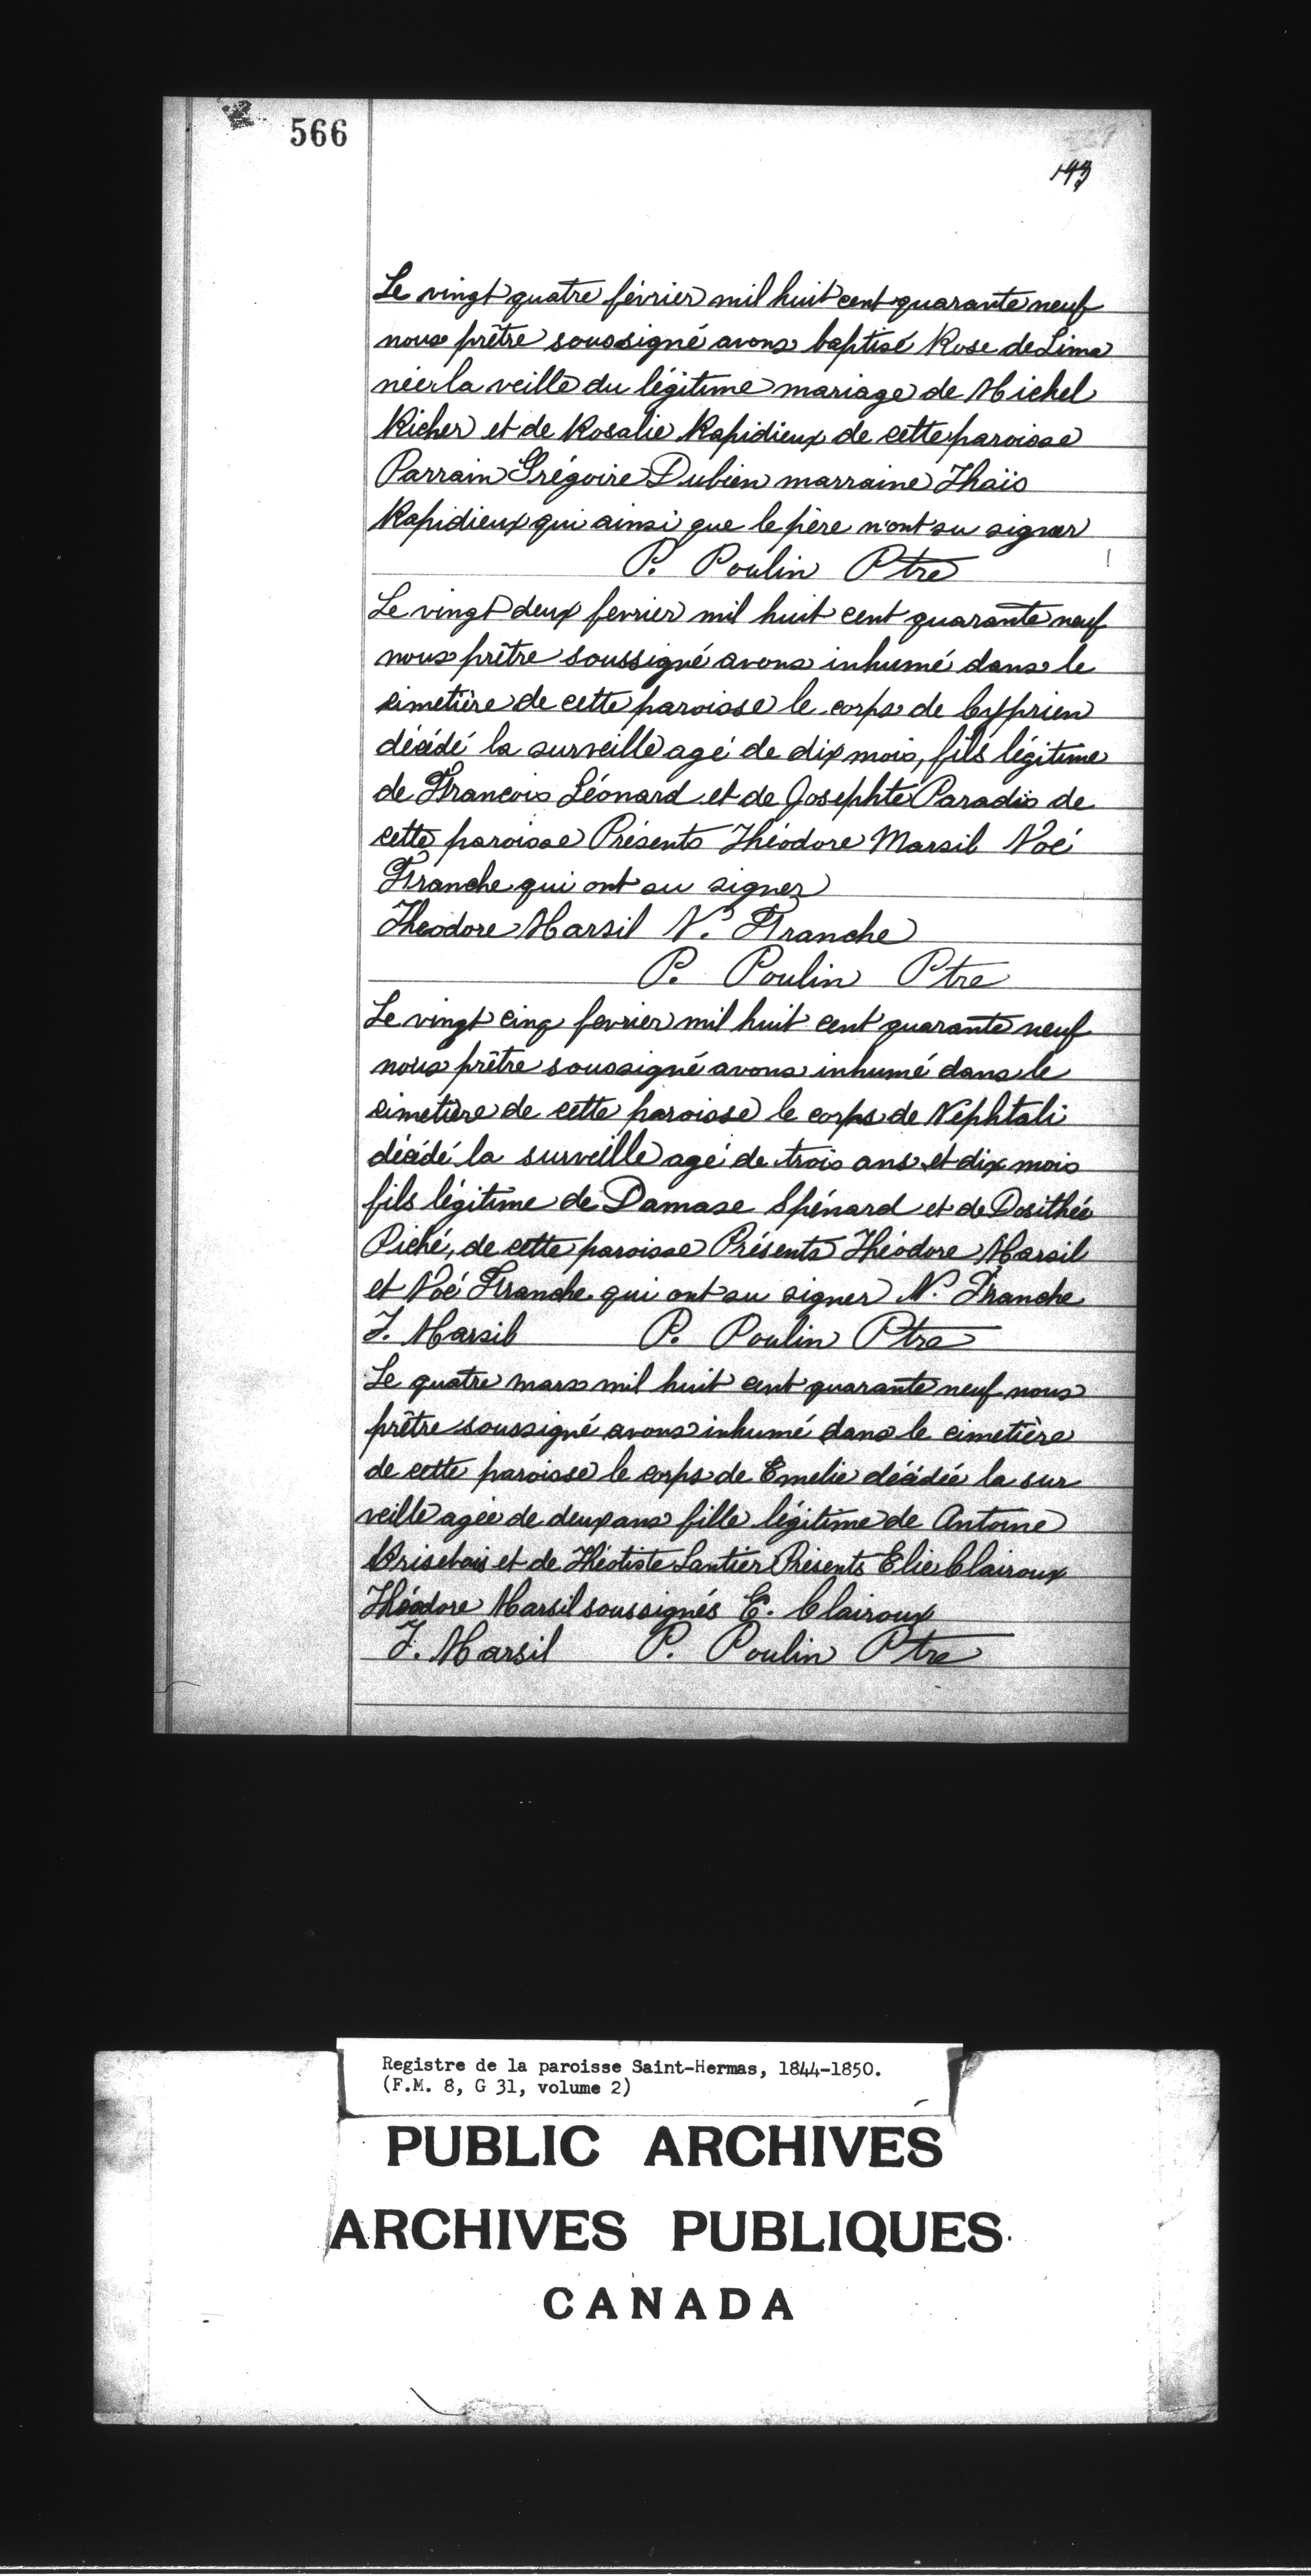 566
193
Le vingt quatre février mil huit cent quarante neuf
nous prêtre soussigné avons baptisé Rose de Lima
née la veille du légitime mariage de Michel
Richer et de Rosalie Rapidieux de cette paroisse
Parrain Grégoire Dubien marraine Thaïs
Rapidieux qui ainsi que le père n'ont su signer
P. Poulin Ptre
Le vingt deux fevrier mil huit cent quarante neuf
nous prêtre soussigné avons inhumé dans le
cimetière de cette paroisse le corps de Cyprien
décédé la surveille agé de dix mois, fils légitime
de Francois Léonard et de Josephte Paradis de
cette paroisse Présents Théodore Marsil Noé
Franche qui ont su signer
Theodore Marsil N. Franche
P. Poulin Ptre
Le vingt cinq fevrier mil huit cent quarante neuf
nous prêtre soussigné avons inhumé dans le
cimetière de cette paroisse le corps de Nephtali
décédé la surveille agé de trois ans et dix mois
fils légitime de Damase Spénard et de Dosithée
Piché, de cette paroisse Présents Théodore Marsil
et Noé Franche qui ont su signer N. Franche
T. Marsil P. Poulin Ptre
Le quatre mars mil huit cent quarante neuf nous
prêtre soussigné avons inhumé dans le cimetière
de cette paroisse le corps de Emelie décédée la sur
veille agée de deux ans fille légitime de Antoine
Brisebois et de Théotiste Lantier Présents Elie Clairoux
Théodore Marsil soussignés E. Clairoux
T. Marsil P. Poulin Ptre
Registre de la paroisse Saint-Hermas, 1844-1850.
(F.M. 8, G 31, volume 2)
PUBLIC ARCHIVES
ARCHIVES PUBLIQUES
CANADA